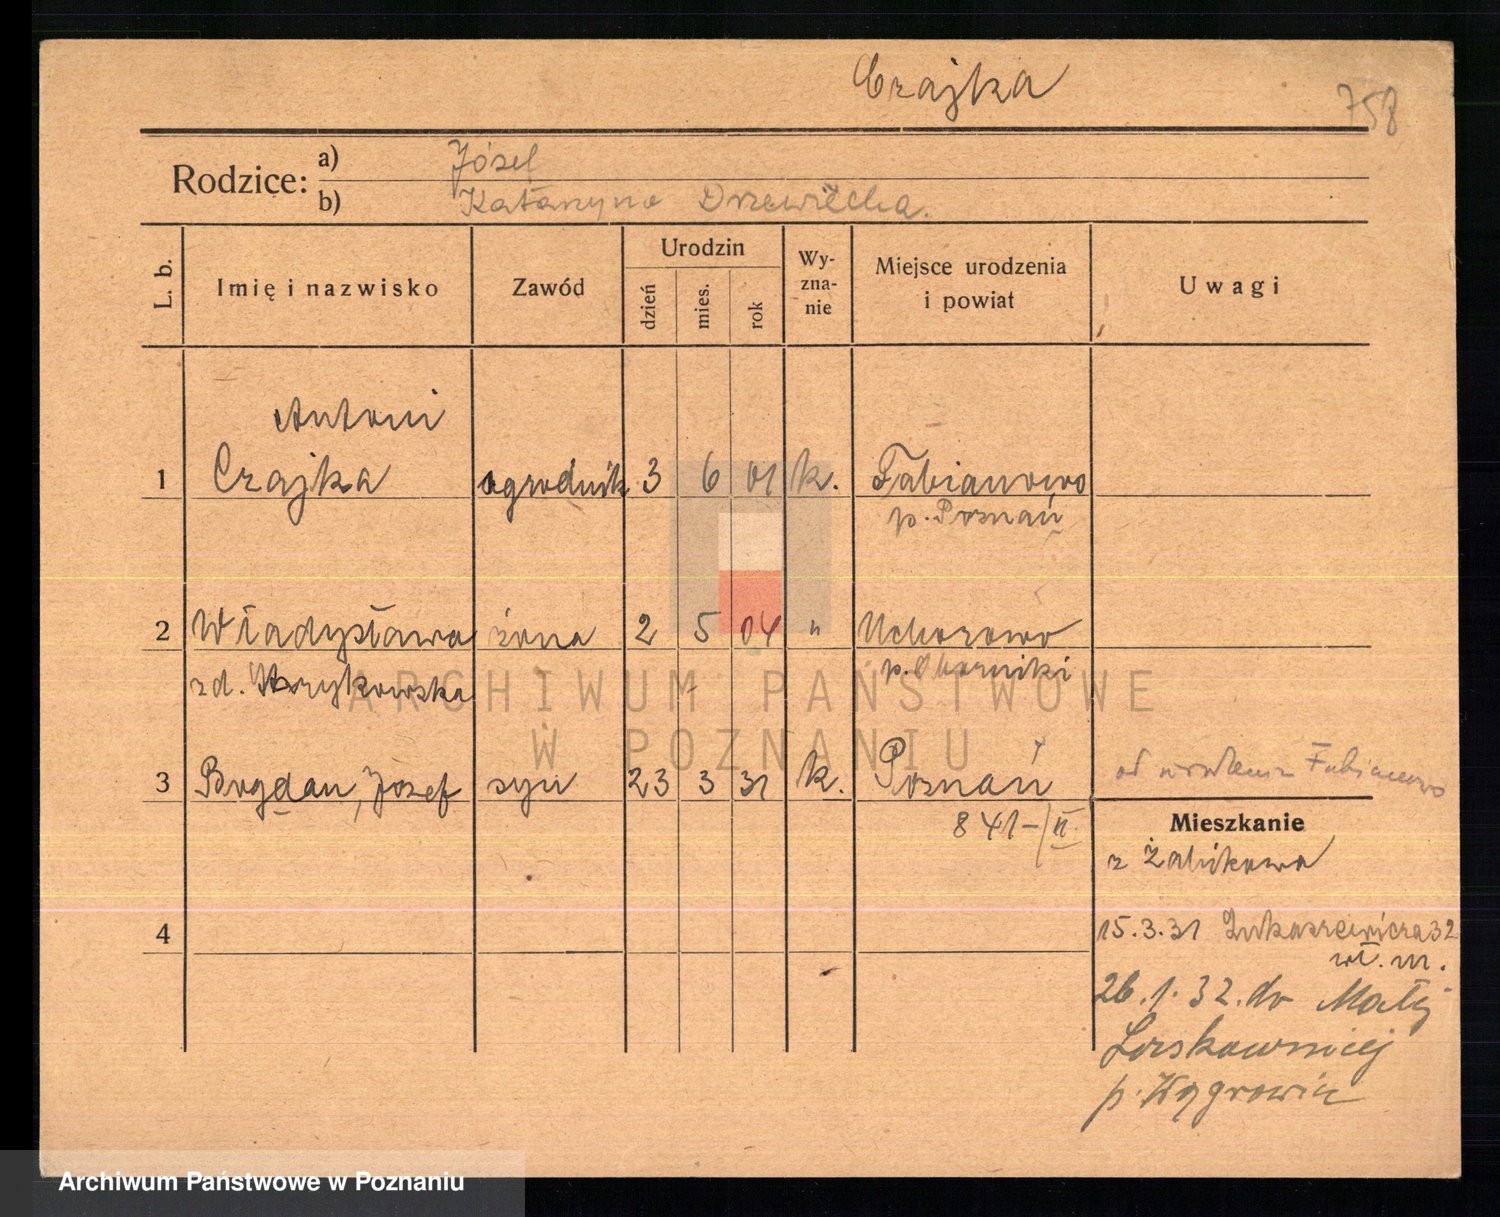 Czajka
758
Rodzice:
a) Józef
b) Katarzyna Drzewiecka.
L. b.
Imię i nazwisko
Zawód
Urodzin
dzień
mies.
rok
Wy-
zna-
nie
Miejsce urodzenia
i powiat
Uwagi
Antoni
1 Czajka ogrodnik 3 6 01 k. Fabianowo
p. Poznań
2 Władysława żona 2 5 04 " Uchorowo
zd. p. Oborniki
3 Bogdan, Józef syn 23 3 31 k. Poznań od urodzenia Fabianowo
841-/II
Mieszkanie
z Żabikowa
4
15.3.31 Łukaszewicza 32
wł. m.
26.1.32. do Małej
p. Wągrowiec
ARCHIWUM PAŃSTWOWE
W POZNANIU
Archiwum Państwowe w Poznaniu